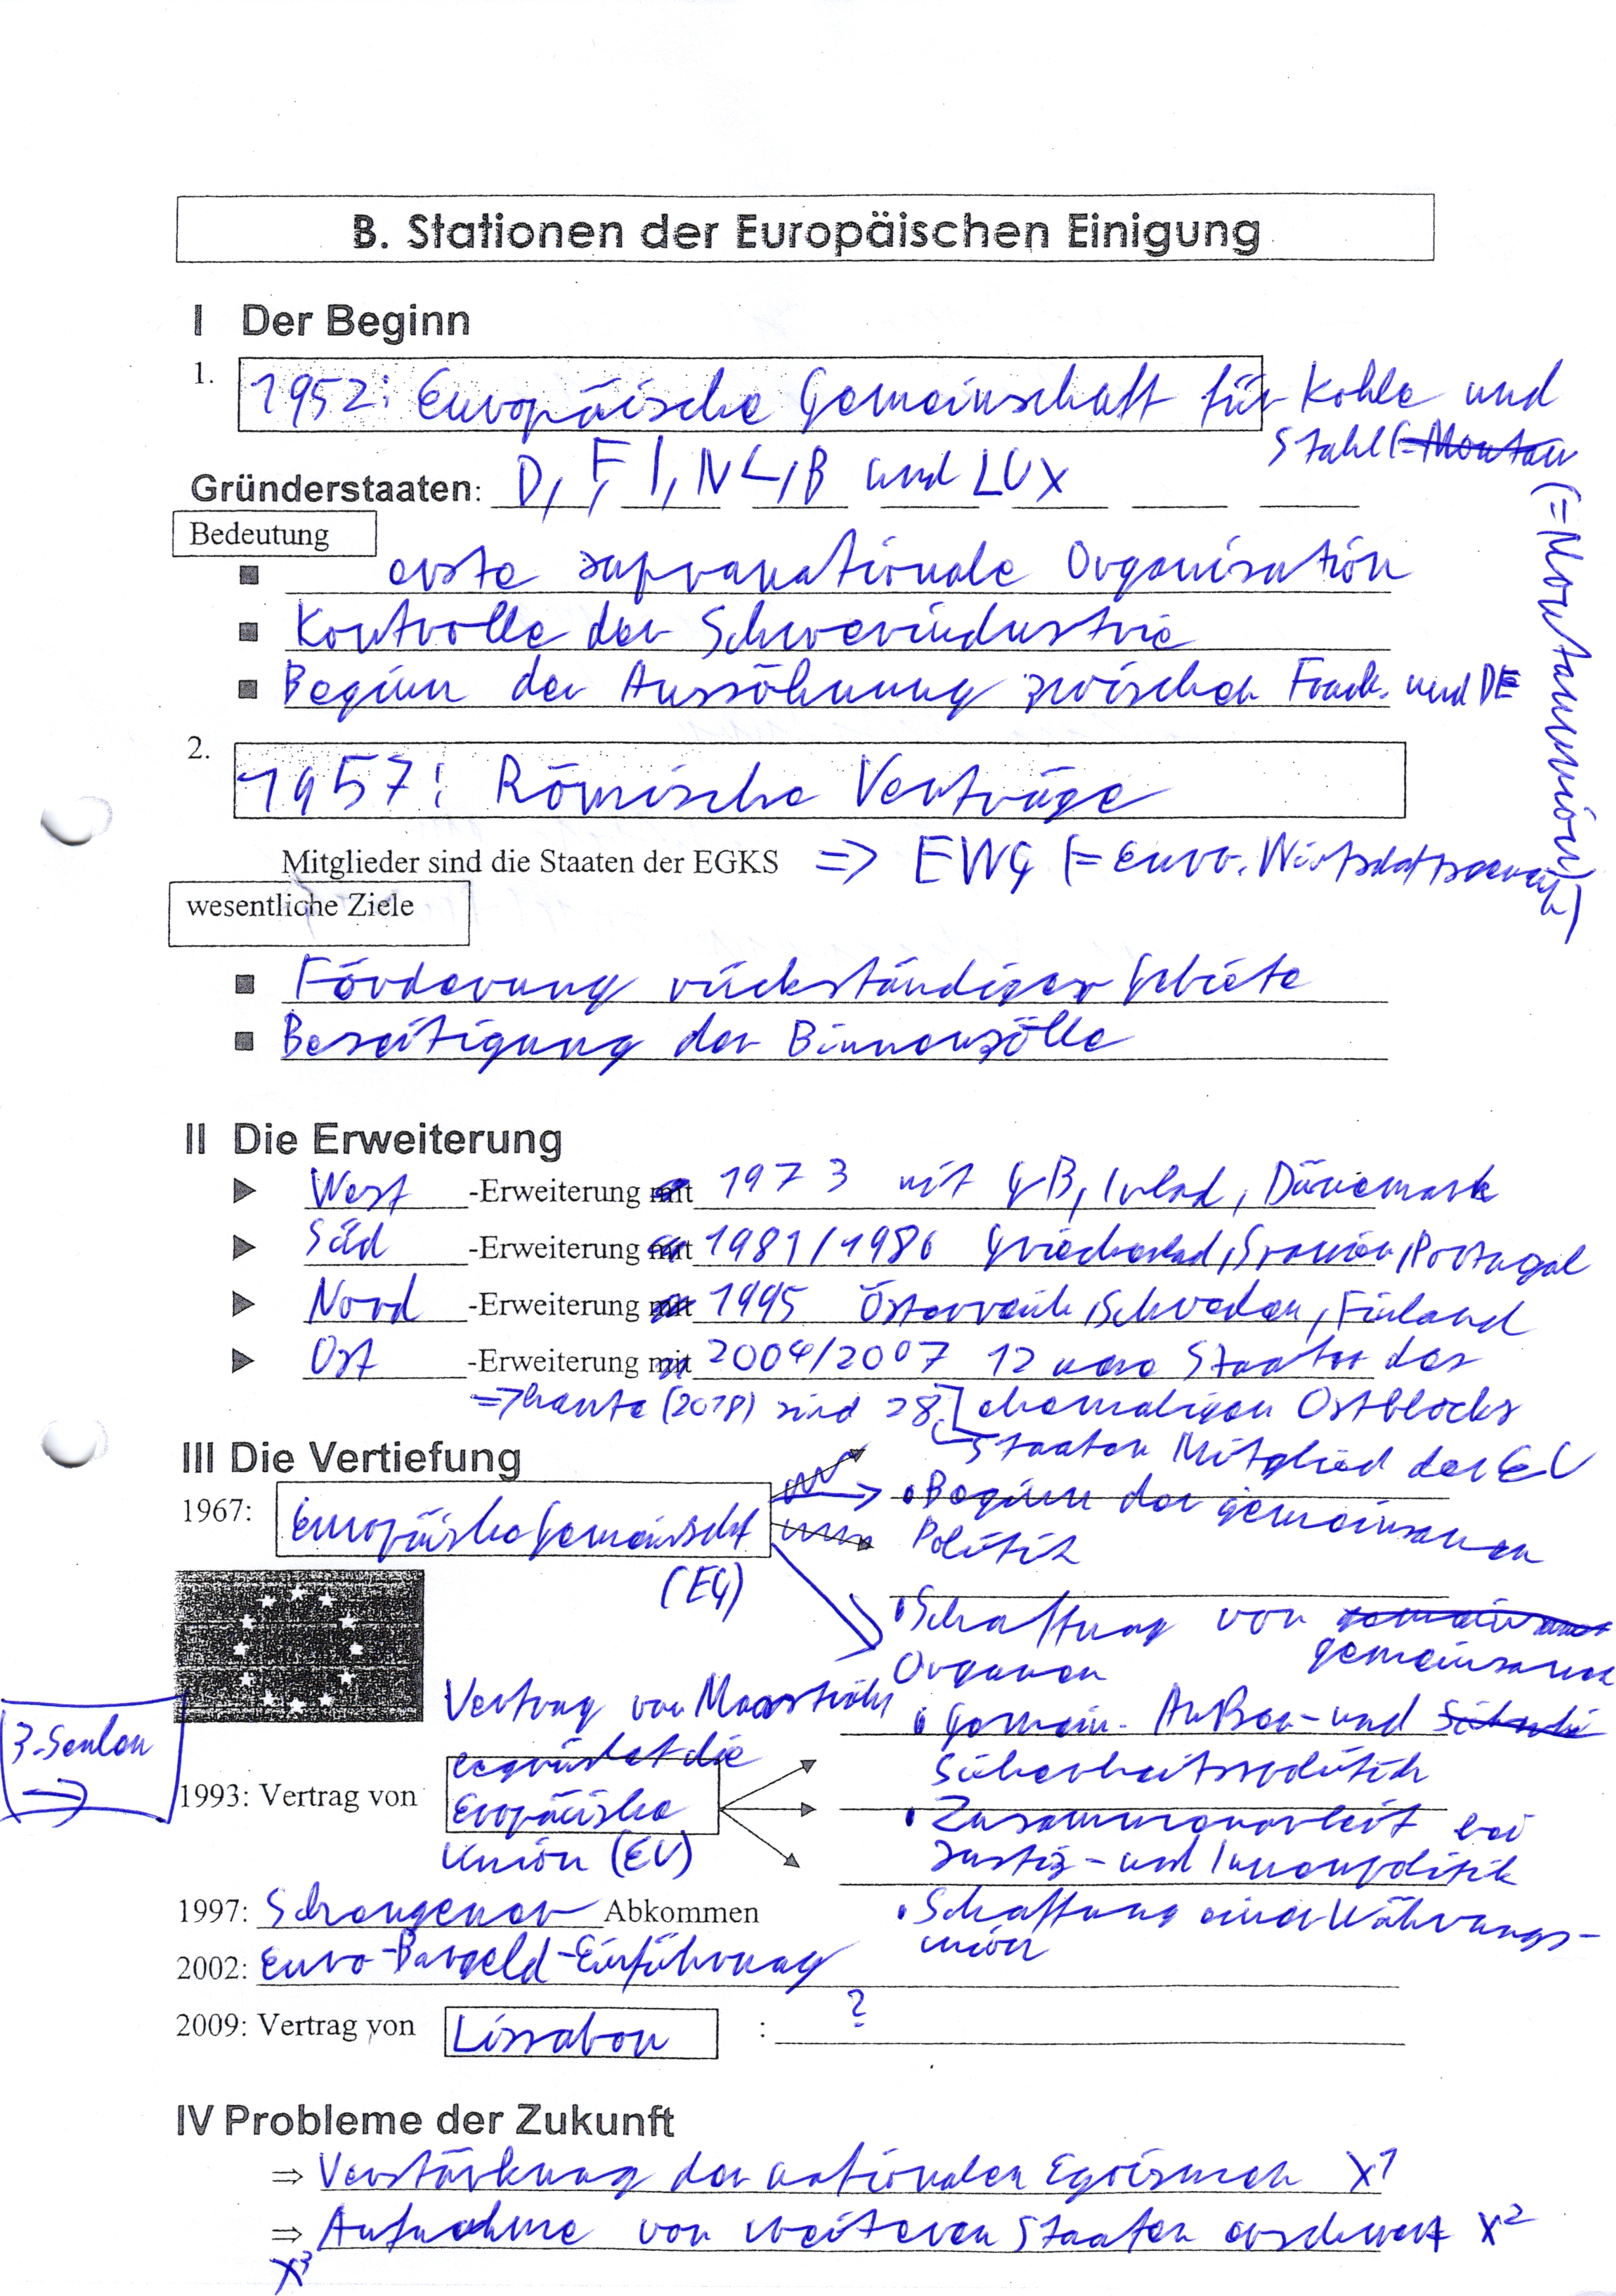 B. Stationen der Europäischen Einigung
I Der Beginn
1. 1952: Europäische Gemeinschaft für Kohle und
Stahl (=Montanunion)
Gründerstaaten: D, F, I, NL, B und LUX
Bedeutung
■ erste supranationale Organisation
■ Kontrolle der Schwerindustrie
■ Beginn der Aussöhnung zwischen Frank. und DE
2. 1957: Römische Verträge
Mitglieder sind die Staaten der EGKS => EWG (= Euro. Wirtschaftsgemein
wesentliche Ziele
■ Förderung rückständiger Gebiete
■ Beseitigung der Binnenzölle
II Die Erweiterung
West -Erweiterung 1973 mit GB, Irland, Dänemark
Süd -Erweiterung 1981/1986 Griechenland, Spanien, Portugal
Nord -Erweiterung 1995 Österreich, Schweden, Finland
Ost -Erweiterung mit 2004/2007 12 neue Staaten des
=> heute (2018) sind 28 ehemaligen Ostblocks
Staaten Mitglied der EU
III Die Vertiefung
1967: Europäische Gemeinschaft
(EG)
• Beginn der gemeinsamen
Politik
• Schaffung von
gemeinsame
Organen
Vertrag von Maastricht
• Gemein. Außen- und
Sicherheitspolitik
3. Säulen
=>
begründet die
1993: Vertrag von Europäische
Union (EU)
• Zusammenarbeit bei
Justiz- und Innenpolitik
• Schaffung einer Währungs-
union
1997: Schengener Abkommen
2002: Euro-Bargeld-Einführung
2009: Vertrag von Lissabon : ?
IV Probleme der Zukunft
⇒ Verstärkung der nationalen Egoismen X1
⇒ Aufnahme von weiteren Staaten erschwert X2
X3